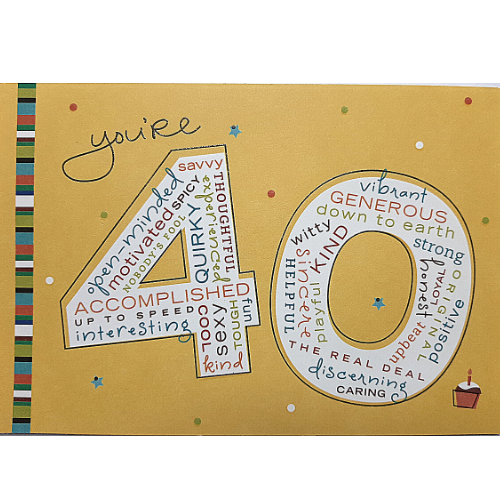 you're
savvy
open-minded
motivated
SPICY
NOBODY'S FOOL
QUIRKY
experienced
THOUGHTFUL
ACCOMPLISHED
UP TO SPEED
interesting
COOL
sexy
TOUGH
fun
kind
vibrant
GENEROUS
down to earth
witty
KIND
strong
sincere
HELPFUL
playful
honest
LOYAL
ORIGINAL
upbeat
positive
THE REAL DEAL
discerning
CARING
40